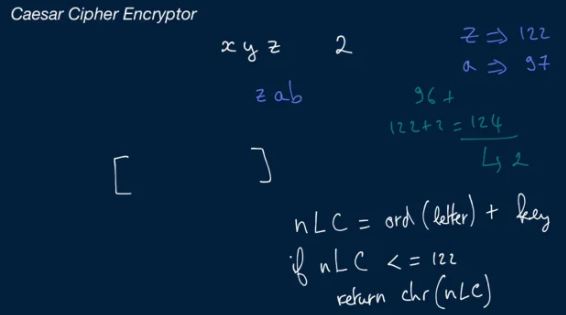 Caesar Cipher Encryptor
x y z 2
z ⇒ 122
a ⇒ 97
z a b
96 +
122+2 = 124
↳ 2
[ ]
nLC = ord(letter) + key
if nLC <= 122
return chr(nLC)